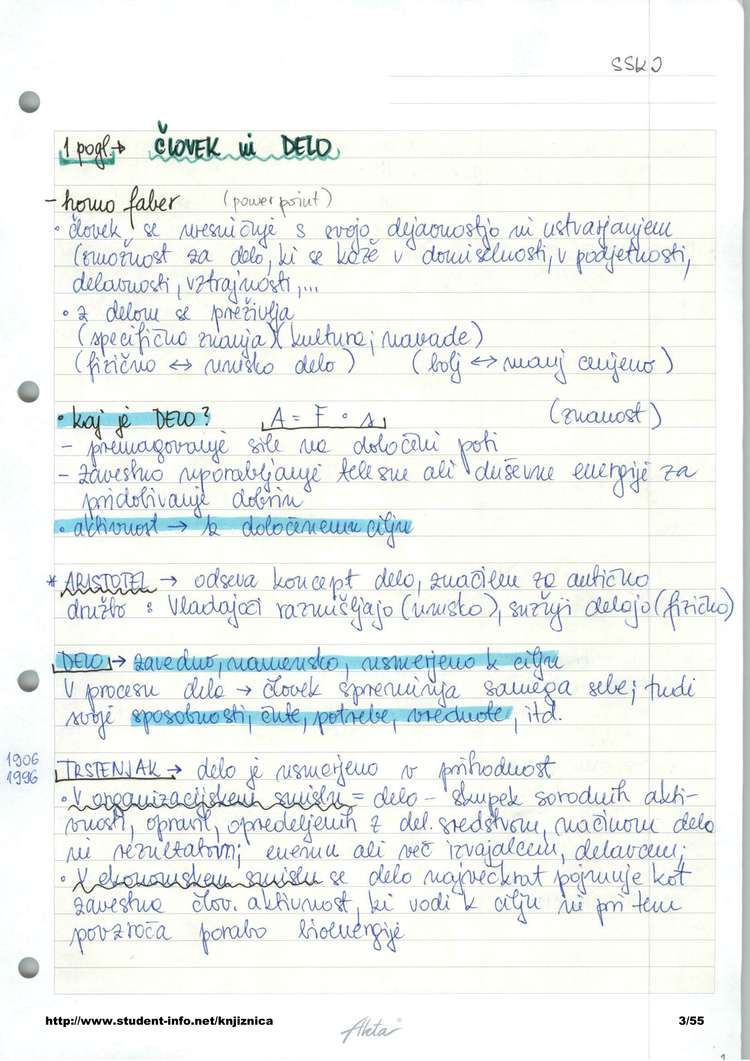 SSKJ
1 pogl. → ČLOVEK in DELO
- homo faber (powerpoint)
• človek se uresničuje s svojo dejavnostjo in ustvarjanjem
(zmožnost za delo, ki se kaže v domiselnosti, v podjetnosti,
delavnosti, vztrajnosti,...
• z delom se preživlja
(specifično znanja)(kultura; navade)
(fizično ↔ umsko delo) (bolj ↔ manj cenjeno)
• kaj je DELO? A = F • s (znanost)
- premagovanje sile na določeni poti
- zavestno uporabljanje telesne ali duševne energije za
pridobivanje dobrin
• aktivnost → k določenemu cilju
* ARISTOTEL → odseva koncept dela, značilen za antično
družbo : vladajoči razmišljajo (umsko), sužnji delajo (fizično)
DELO → zavedno, namensko, usmerjeno k cilju
V procesu dela → človek spreminja samega sebe; tudi
svoje sposobnosti, čute, potrebe, vrednote, itd.
1906
1996
TRSTENJAK → delo je usmerjeno v prihodnost
• V organizacijskem smislu = delo - skupek sorodnih akti-
vnosti, opravil, opredeljenih z del. sredstvom, načinom dela
in rezultatom; enemu ali več izvajalcem, delavcem;
• V ekonomskem smislu se delo največkrat pojmuje kot
zavestna člov. aktivnost, ki vodi k cilju in pri tem
povzroča porabo bioenergije
http://www.student-info.net/knjiznica
Akta
3/55
1